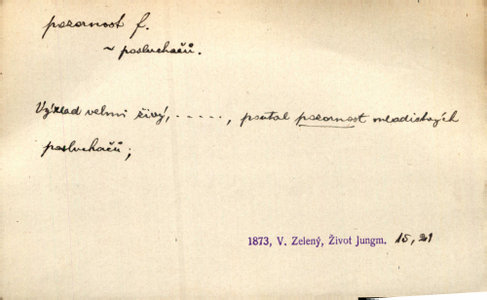 pozornost f.
~ posluchačů.
Výklad velmi živý, ....., poutal pozornost mladistvých
posluchačů;
1873, V. Zelený, Život Jungm. 15, 21